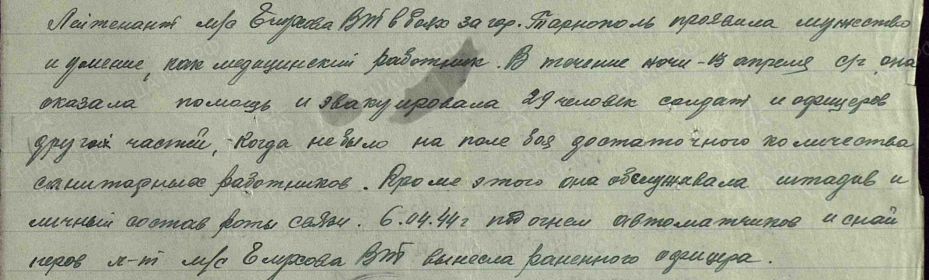 Лейтенант м/с Елухова ВТ в боях за гор. Тарнополь проявила мужество
и умение, как медицинский работник. В течение ночи 13 апреля с/г она
оказала помощь и эвакуировала 29 человек солдат и офицеров
других частей, когда не было на поле боя достаточного количества
санитарных работников. Кроме этого она обслуживала штадив и
личный состав роты связи. 6.04.44г под огнем автоматчиков и снай
перов л-т м/с Елухова ВТ вынесла раненного офицера.